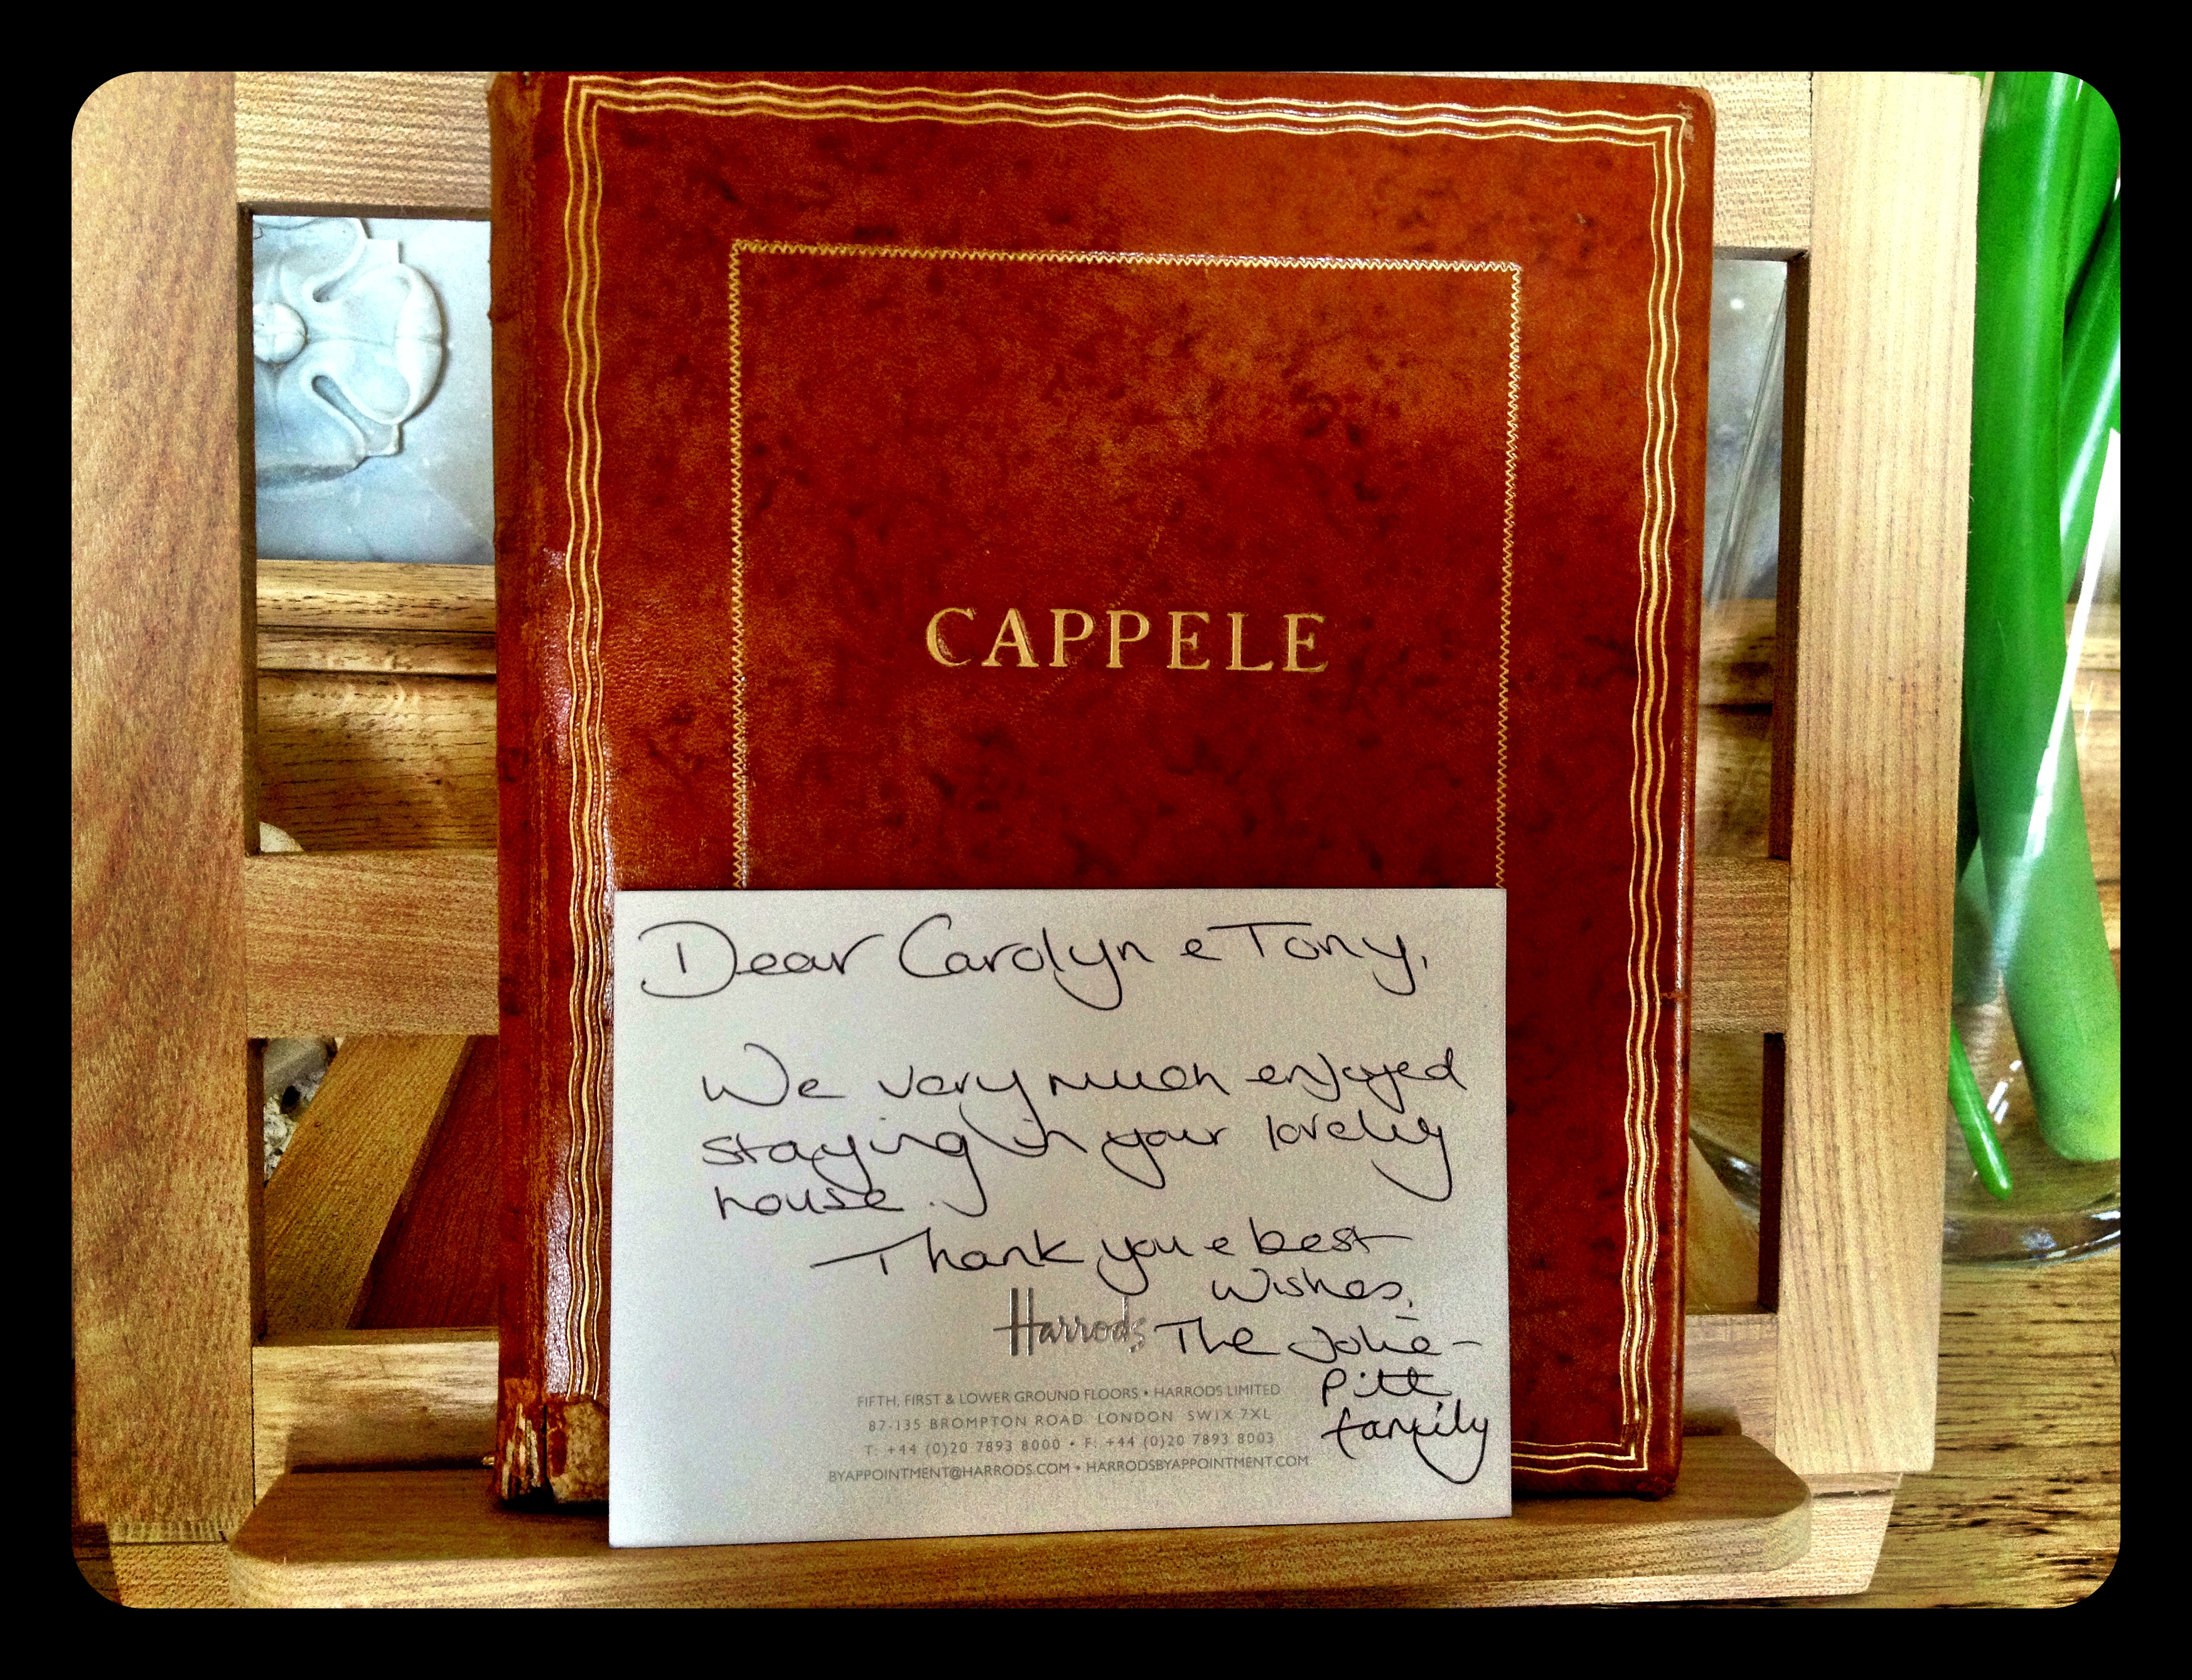 CAPPELE
Dear Carolyn e Tony,
We very much enjoyed
staying in your lovely
house.
Thank you e best
wishes,
The Jolie-
Pitt
family
Harrods
FIFTH, FIRST & LOWER GROUND FLOORS • HARRODS LIMITED
87-135 BROMPTON ROAD LONDON SW1X 7XL
T: +44 (0)20 7893 8000 • F: +44 (0)20 7893 8003
BYAPPOINTMENT@HARRODS.COM • HARRODSBYAPPOINTMENT.COM